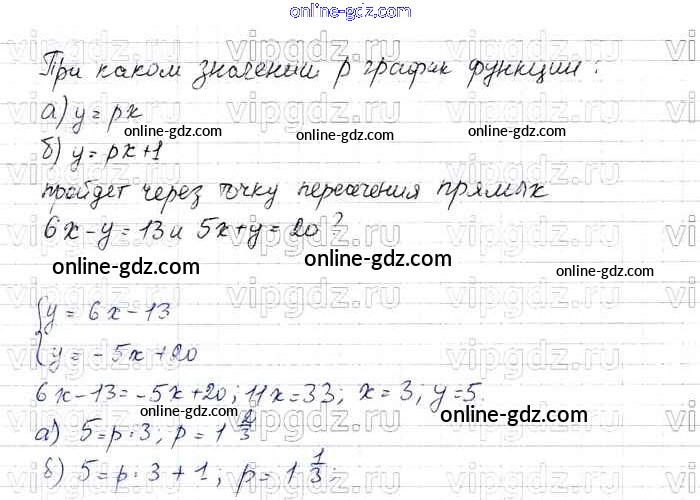 online-gdz.com
При каком значении p график функции:
а) y = px
online-gdz.com online-gdz.com online-gdz.com
б) y = px+1
пройдет через точку пересечения прямых
6x-y=13 и 5x+y=20?
online-gdz.com online-gdz.com online-gdz.com
vipgdz.ru
{y = 6x-13
{y = -5x+20
6x-13=-5x+20; 11x=33; x=3; y=5.
online-gdz.com online-gdz.com online-gdz.com
а) 5=p·3; p=1 2/3
б) 5=p·3+1; p=1 1/3.